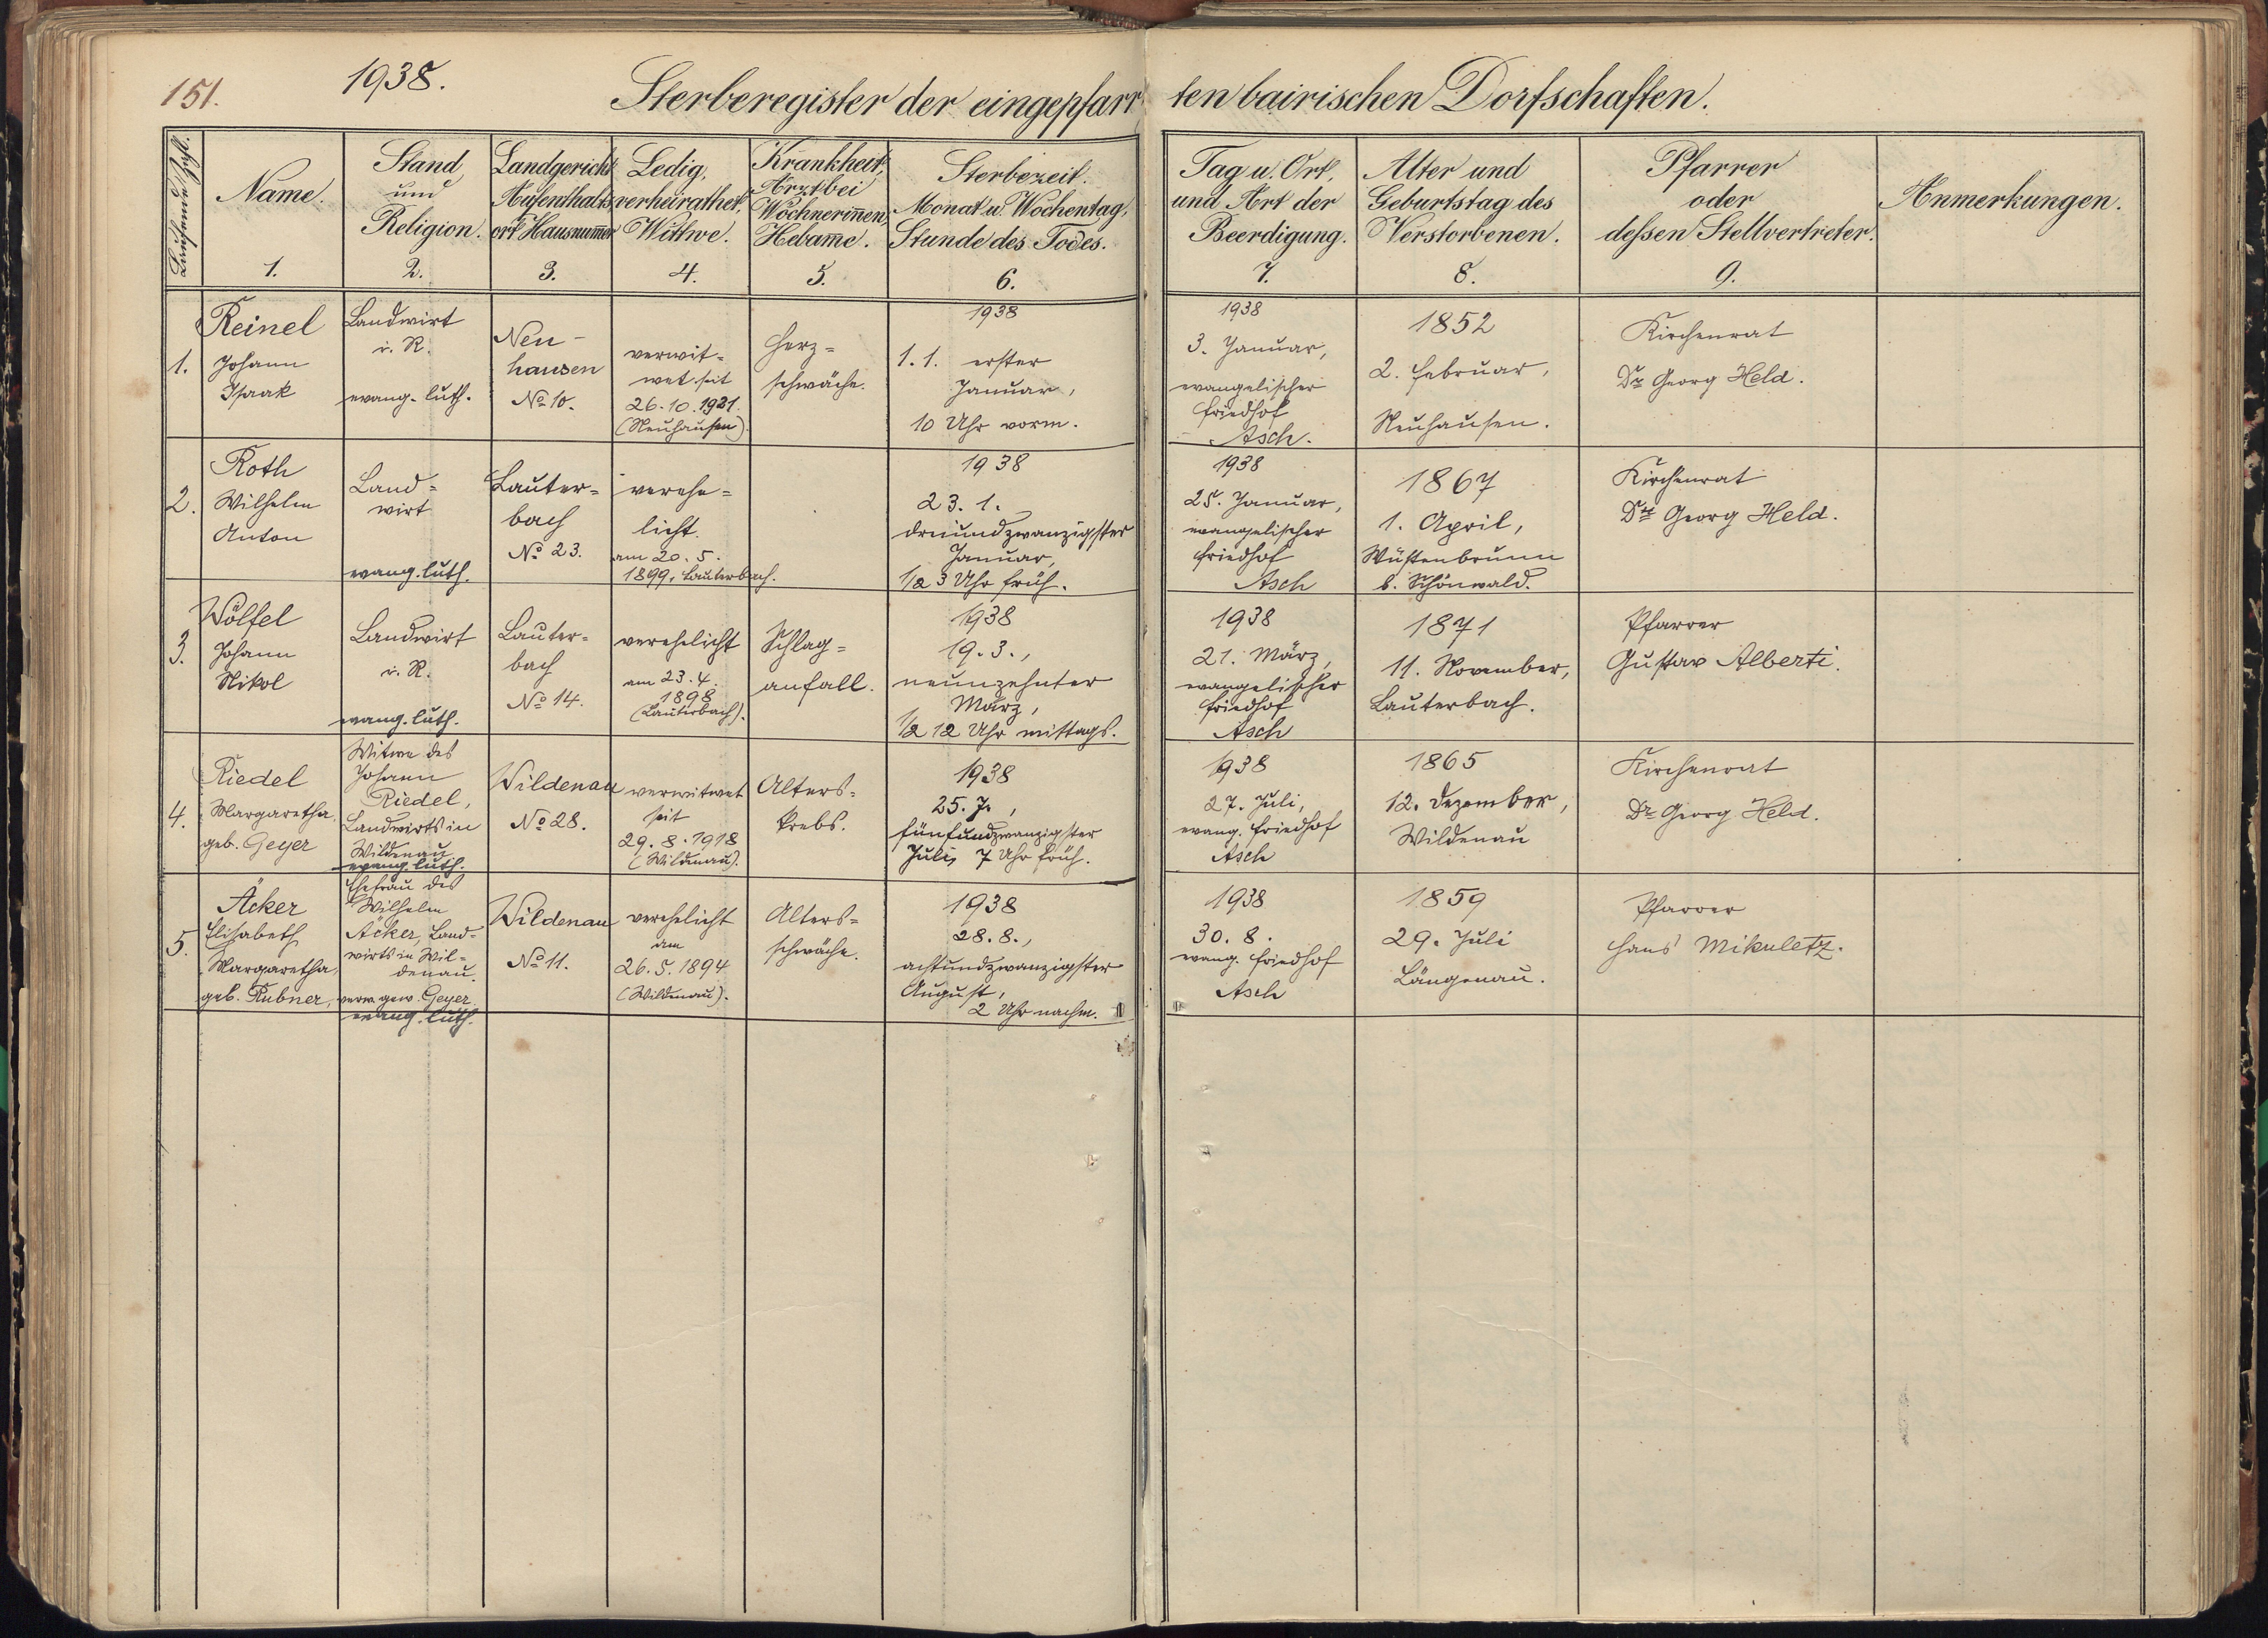 151.
1938.
Sterberegister der eingepfarrten bairischen Dorfschaften.
Laufende Zahl.
Name.
1.
Stand
und
Religion.
2.
Landgericht
Aufenthalts
ort Hausnummer
3.
Ledig,
verheirathet,
Wittwe.
4.
Krankheit,
Arzt bei
Wöchnerinnen,
Hebamme.
5.
Sterbezeit.
Monat u. Wochentag,
Stunde des Todes.
6.
Tag u. Ort,
und Art der
Beerdigung.
7.
Alter und
Geburtstag des
Verstorbenen.
8.
Pfarrer
oder
dessen Stellvertreter.
9.
Anmerkungen.
1.
Reinel
Johann
Isaak
Landwirt
i. R.
evang. luth.
Neu-
hausen
No 10.
verwit=
wet seit
26.10.1921.
(Neuhausen).
Herz=
schwäche.
1938
1.1. erster
Januar,
10 Uhr vorm.
1938
3. Januar,
evangelischer
Friedhof
Asch.
1852
2. Februar,
Neuhausen.
Kirchenrat
Dr Georg Held.
2.
Roth
Wilhelm
Anton
Land=
wirt
evang. luth.
Lauter=
bach
No 23.
verehe=
licht.
am 20.5.
1899, Lauterbach.
1938
23.1.
dreiundzwanzigster
Januar,
1/2 3 Uhr früh.
1938
25. Januar,
evangelischer
Friedhof
Asch
1867
1. April,
Wüstenbrunn
b. Schönwald.
Kirchenrat
Dr Georg Held.
3.
Wölfel
Johann
Nikol
Landwirt
i. R.
evang. luth.
Lauter=
bach
No 14.
verehelicht
am 23.4.
1898
(Lauterbach).
Schlag=
anfall.
1938
19.3.,
neunzehnter
März,
1/2 12 Uhr mittags.
1938
21. März,
evangelischer
Friedhof
Asch
1871
11. November,
Lauterbach.
Pfarrer
Gustav Alberti.
4.
Riedel
Margaretha,
geb. Geyer
Witwe des
Johann
Riedel,
Landwirts in
Wildenau
evang. luth.
Wildenau
No 28.
verwitwet
seit
29.8.1918
(Wildenau).
Alters=
krebs.
1938
25.7.,
fünfundzwanzigster
Juli, 7 Uhr früh.
1938
27. Juli,
evang. Friedhof
Asch
1865
12. Dezember,
Wildenau
Kirchenrat
Dr Georg Held.
5.
Äcker
Elisabeth
Margaretha,
geb. Rubner,
Ehefrau des
Wilhelm
Äcker, Land=
wirts in Wil=
denau.
verw. gew. Geyer
evang. luth.
Wildenau
No 11.
verehelicht
am
26.5.1894
(Wildenau).
Alters=
schwäche.
1938
28.8.,
achtundzwanzigster
August,
2 Uhr nachm.
1938
30.8.
evang. Friedhof
Asch
1859
29. Juli
Längenau.
Pfarrer
Hans Mikuletz.